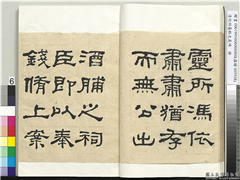 靈所馮依
肅肅猶存
而無公出
酒脯之祠
臣即以奉
錢脩上案
6